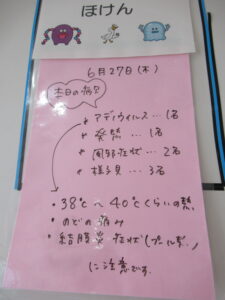 ほけん
6月27日(木)
本日の病欠
* アデノウイルス… 1名
* 発熱 … 1名
* 風邪症状 … 2名
* 様子見 … 3名
• 38℃〜40℃くらいの熱
• のどの痛み
• 結膜炎症状(プール
に注意です。